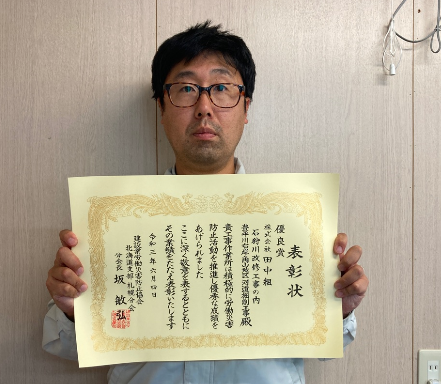 表彰状
優良賞
株式会社 田中組
石狩川改修工事の内
殿
貴工事作業所は積極的に労働災害
防止活動を推進し優秀な成績を
あげられました
ここに深く敬意を表するとともに
その業績をたたえ表彰いたします
令和三年六月四日
建設業労働災害防止協会
北海道支部札幌分会
分会長 坂 敏弘